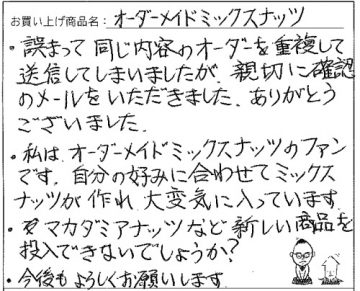 お買い上げ商品名：オーダーメイドミックスナッツ
・誤まって同じ内容のオーダーを重複して
送信してしまいましたが、親切に確認
のメールをいただきました。ありがとう
ございました。
・私は、オーダーメイドミックスナッツのファン
です。自分の好みに合わせてミックス
ナッツが作れ、大変気に入っています。
・マカダミアナッツなど新しい商品を
投入できないでしょうか？
・今後もよろしくお願いします。